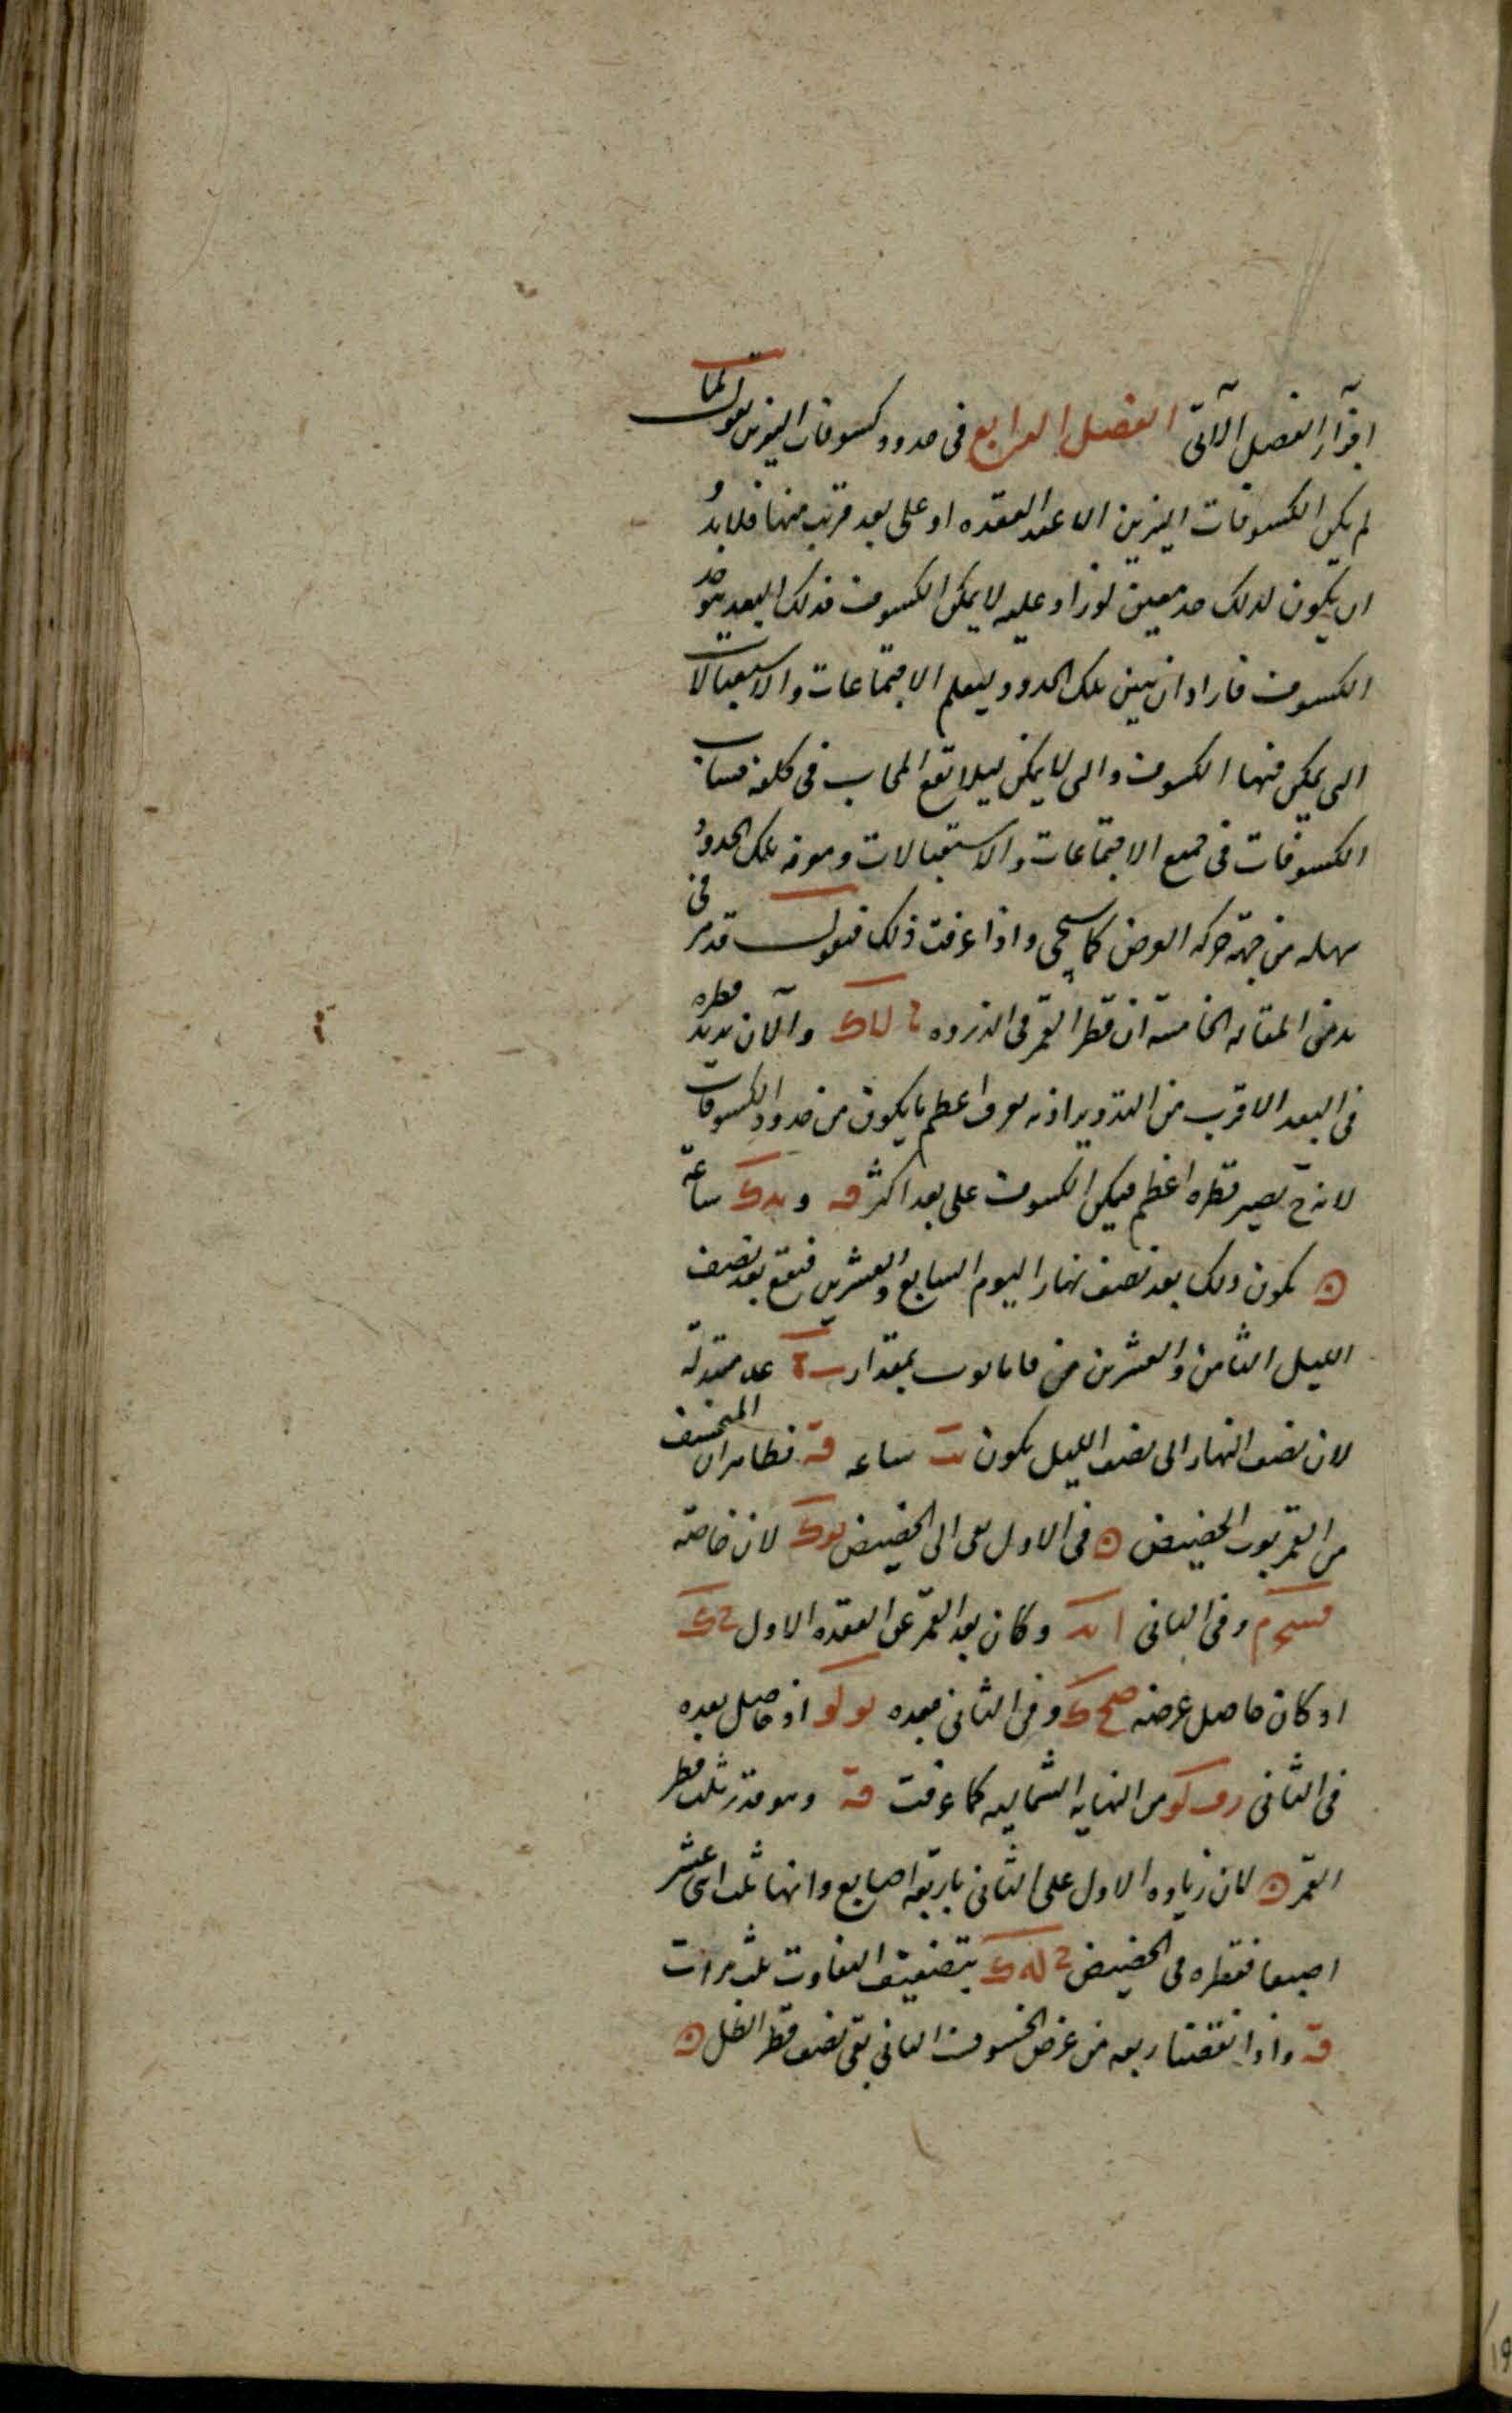 آخر الفصل الآتى الفصل الرابع فى حدود كسوفات النيرين نقول لما
لم يكن الكسوفات النيرين الا عند العقده او على بعد قريب منها فلا بد و
ان يكون لذلك حد معين لو زاد عليه لا يمكن الكسوف فذلك البعد هو حد
الكسوف فاراد ان يبين تلك الحدود ليعلم الاجتماعات والاستقبالات
التى يمكن فيها الكسوف والتى لا يمكن ليلا تقع الحاسب فى كلفة حساب
الكسوفات فى جميع الاجتماعات والاستقبالات ومعرفه تلك الحدود
سهله من جهة حركه العرض كما سيجى واذا عرفت ذلك فنقول قد مر فى
يد من المقاله الخامسة ان قطر القمر فى الذروه ح لا ك والآن يريد قطره
فى البعد الاقرب من التدوير اذ به يعرف اعظم ما يكون من حدود الكسوفات
لانه ح يصير قطره اعظم فيمكن الكسوف على بعد اكثر قه و يدك ساعة
ن يكون ذلك بعد نصف نهار اليوم السابع والعشرين فيقع بعد نصف
الليل الثامن والعشرين من فامانوث بمقدار عه معتدلة
لان نصف النهار الى نصف الليل يكون يب ساعه قه فظاهر ان المنخسف
من القمر بقرب الحضيض ن فى الاول بقى الى الحضيض لان خاصته
قسح م وفى الثانى وكان بعد القمر عن العقده الاول ح ك
اذ كان حاصل عرضه صح ك وفى الثانى فبعده اذ حاصل بعده
فى الثانى من النهايه الشماليه كما عرفت قه وهو قدر ثلث قطر
القمر ن لان زياده الاول على الثانى باربعة اصابع وانها ثلث اثنى عشر
اصبعا فقطره فى الحضيض ح له ك بتضعيف التفاوت ثلث مرات
قه واذا نقصنا ربعه من عرض الخسوف الثانى بقى نصف قطر الظل ن